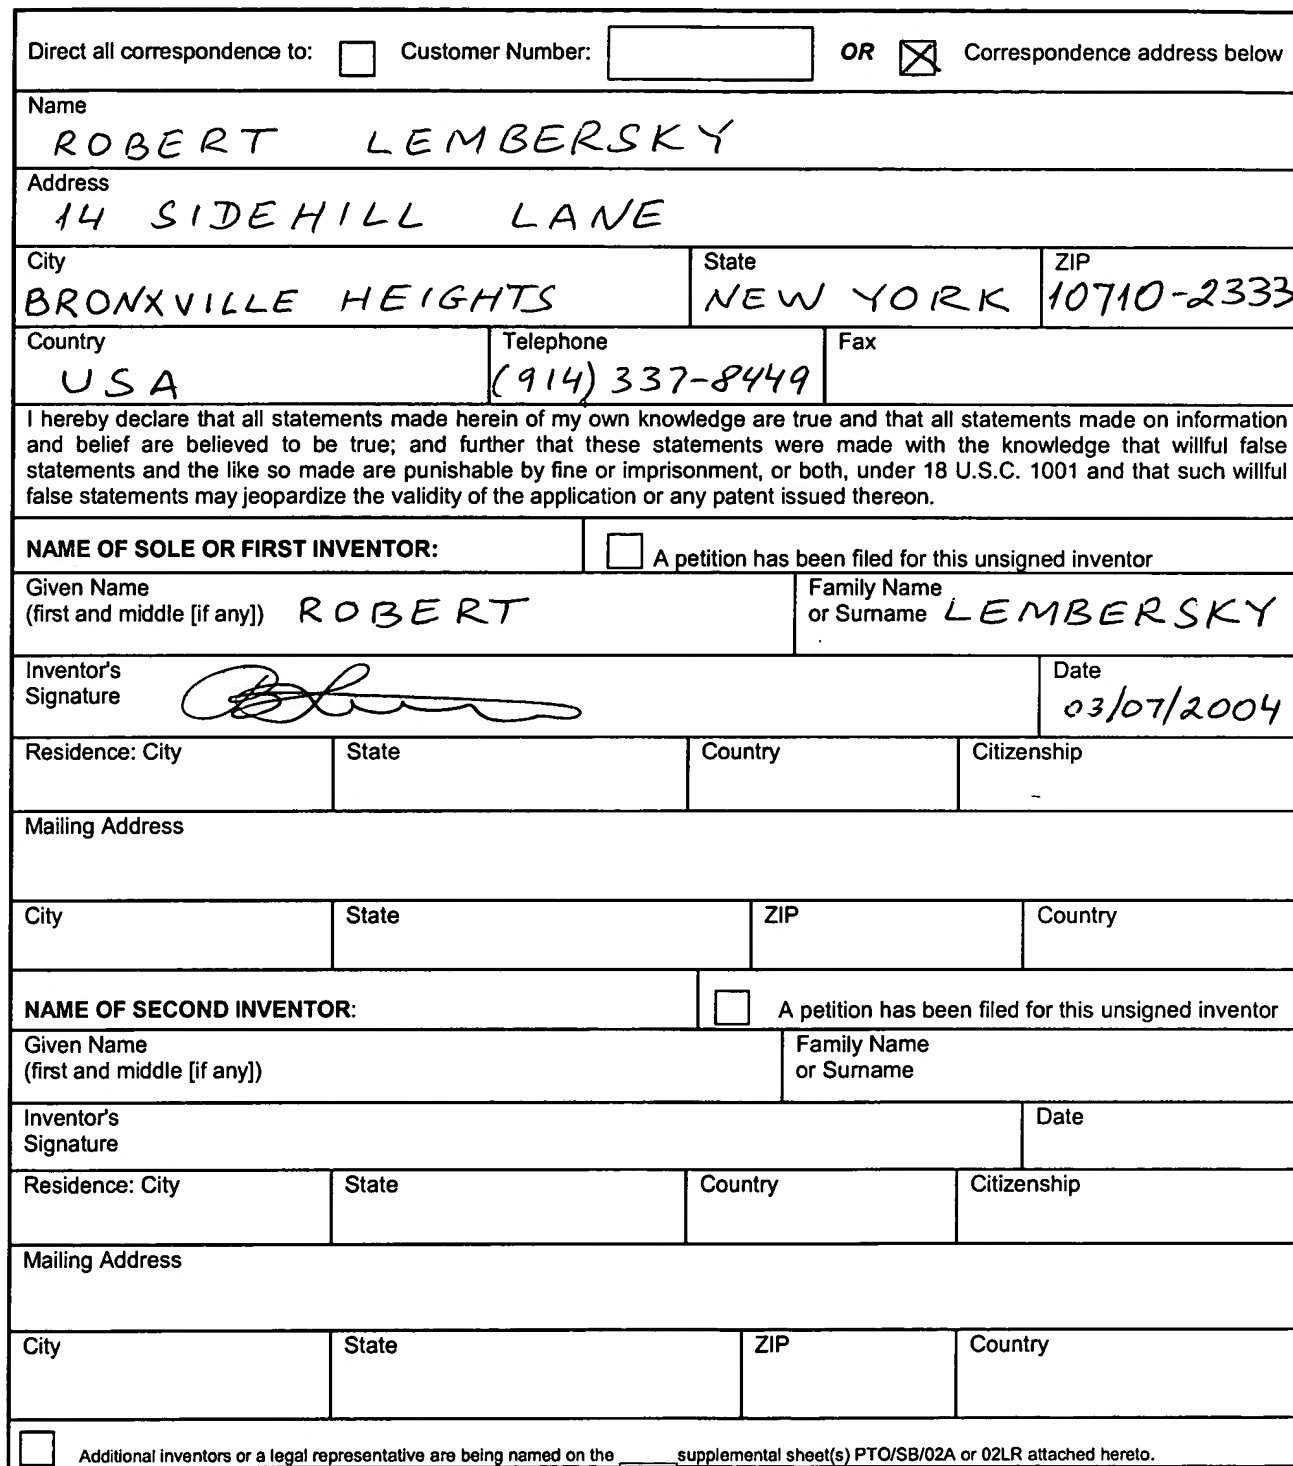 Direct all correspondence to: Customer Number: OR Correspondence address below
Name
ROBERT LEMBERSKY
Address
14 SIDEHILL LANE
City State ZIP
BRONXVILLE HEIGHTS NEW YORK 10710-2333
Country Telephone Fax
USA (914) 337-8449
I hereby declare that all statements made herein of my own knowledge are true and that all statements made on information
and belief are believed to be true; and further that these statements were made with the knowledge that willful false
statements and the like so made are punishable by fine or imprisonment, or both, under 18 U.S.C. 1001 and that such willful
false statements may jeopardize the validity of the application or any patent issued thereon.
NAME OF SOLE OR FIRST INVENTOR: A petition has been filed for this unsigned inventor
Given Name Family Name
(first and middle [if any]) ROBERT or Surname LEMBERSKY
Inventor's Date
Signature 03/07/2004
Residence: City State Country Citizenship
Mailing Address
City State ZIP Country
NAME OF SECOND INVENTOR: A petition has been filed for this unsigned inventor
Given Name Family Name
(first and middle [if any]) or Surname
Inventor's Date
Signature
Residence: City State Country Citizenship
Mailing Address
City State ZIP Country
Additional inventors or a legal representative are being named on the _____ supplemental sheet(s) PTO/SB/02A or 02LR attached hereto.